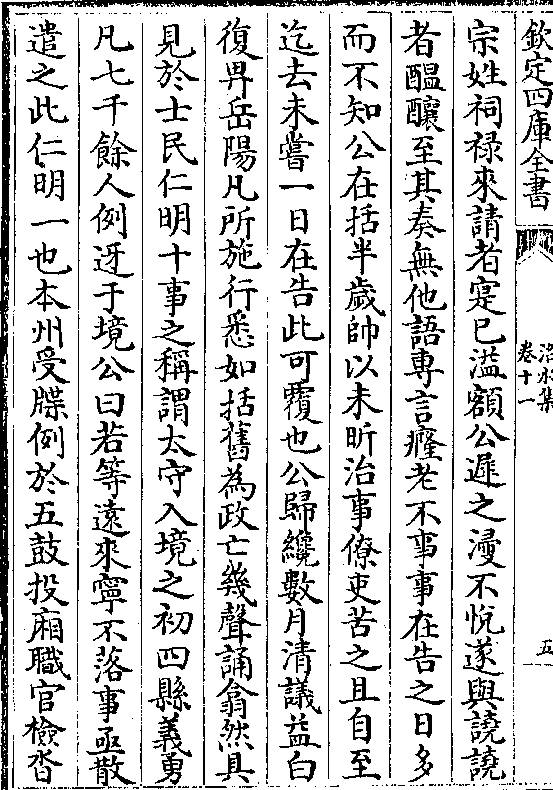 欽定四庫全書
洺水集
卷十一
五
宗姓祠禄來請者寔已溢額公遲之漫不悅遂與譊譊
者醞釀至其奏無他語專言癃老不事事在告之日多
而不知公在括半歲帥以未昕治事僚吏苦之且自至
迄去未嘗一日在告此可覆也公歸纔數月清議益白
復畀岳陽凡所施行悉如括舊為政亡幾聲誦翕然具
見於士民仁明十事之稱謂太守入境之初四縣義勇
凡七千餘人例迓于境公曰若等遠來寧不落事亟散
遣之此仁明一也本州受牒例於五鼓投廂職官檢沓